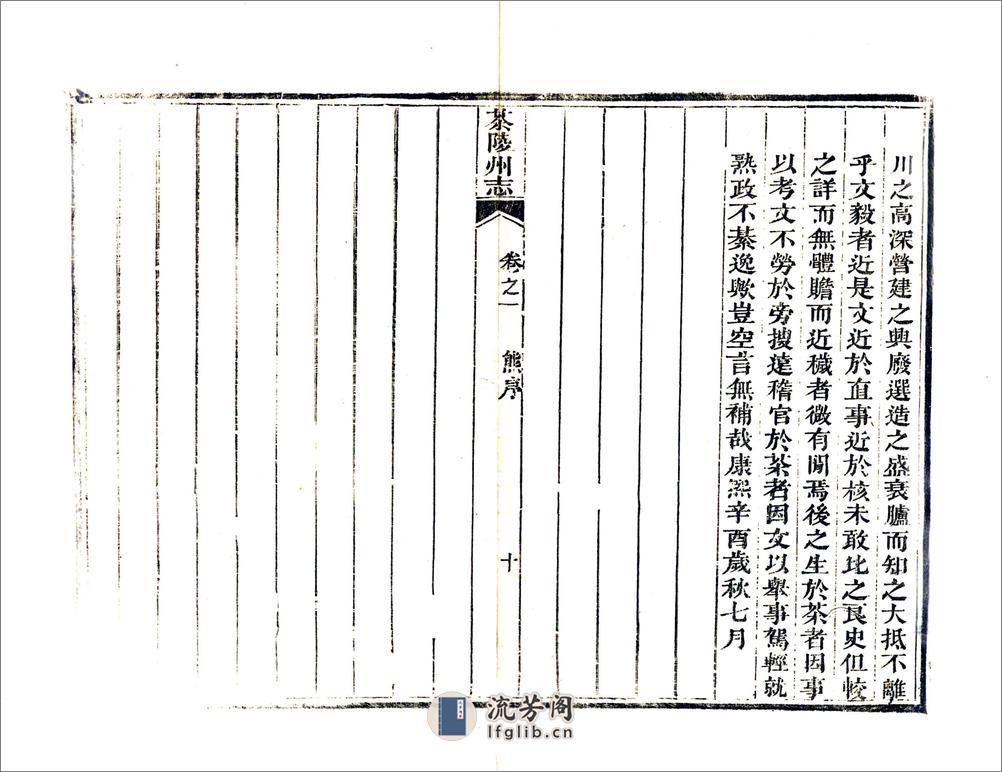 川之高深營建之興廢選造之盛衰臚而知之大抵不離
乎文毅者近是文近於直事近於核未敢比之良史但較
之詳而無體贍而近穢者微有閒焉後之生於茶者因事
以考文不勞於旁搜遠稽官於茶者因文以舉事駕輕就
熟政不綦逸歟豈空言無補哉康熙辛酉歲秋七月
茶陵州志
卷之一
熊序
十
流芳阁
lfglib.cn